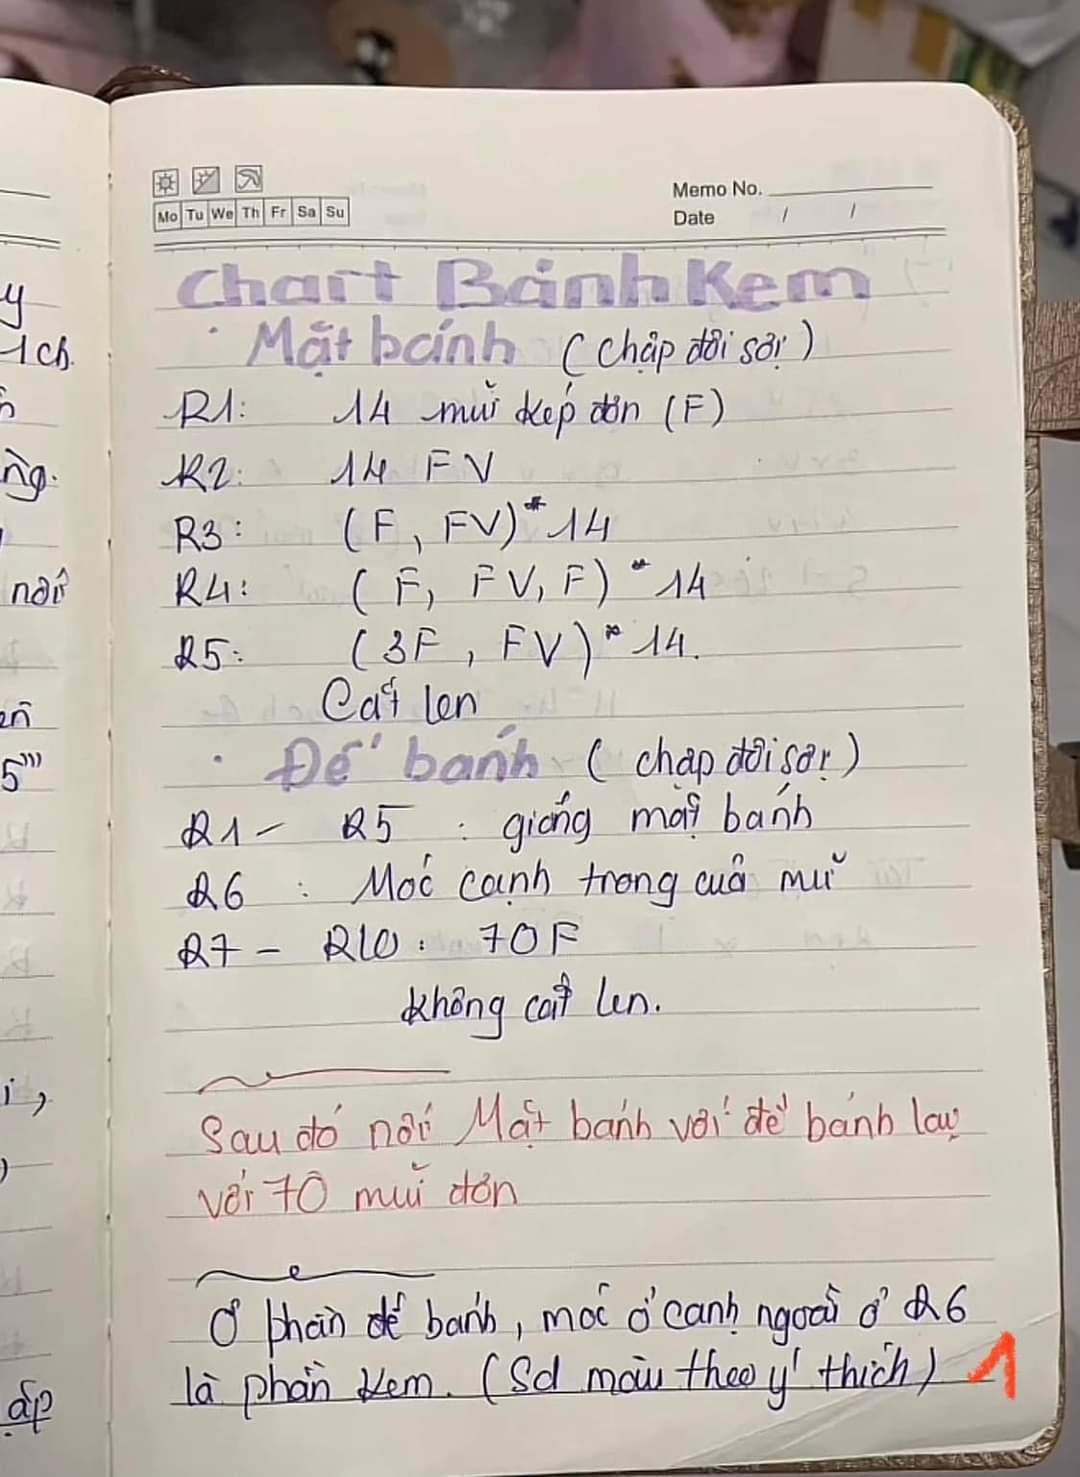 Mo Tu We Th Fr Sa Su
Memo No.
Date / /
Chart Bánh Kem
· Mặt bánh (chập đôi sợi)
R1: 14 mũi kép đơn (F)
R2: 14 FV
R3: (F, FV)*14
R4: (F, FV, F)*14
R5: (3F, FV)*14.
Cắt len
· Đế bánh (chập đôi sợi)
R1 - R5 : giống mặt bánh
R6 : Móc cạnh trong của mũi
R7 - R10: 70F
không cắt len.
Sau đó nối Mặt bánh với đế bánh lại
với 70 mũi đơn
Ở phần đế bánh, móc ở cạnh ngoài ở R6
là phần kem. (Sd màu theo ý thích) 1
y
1ch.
ng.
nối
5'''
i,
)
ấp